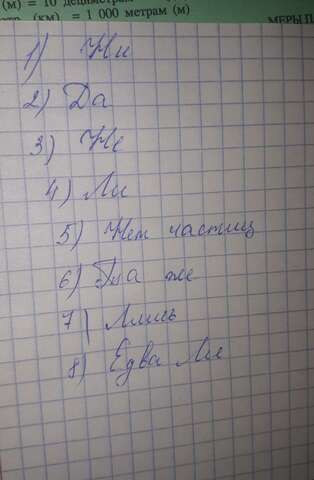 (м) = 10 дециметрам
(км) = 1 000 метрам (м)
МЕРЫ
1) Ни
2) Да
3) Не
4) Ли
5) Нет частиц
6) же
7) Лишь
8) Едва Ли